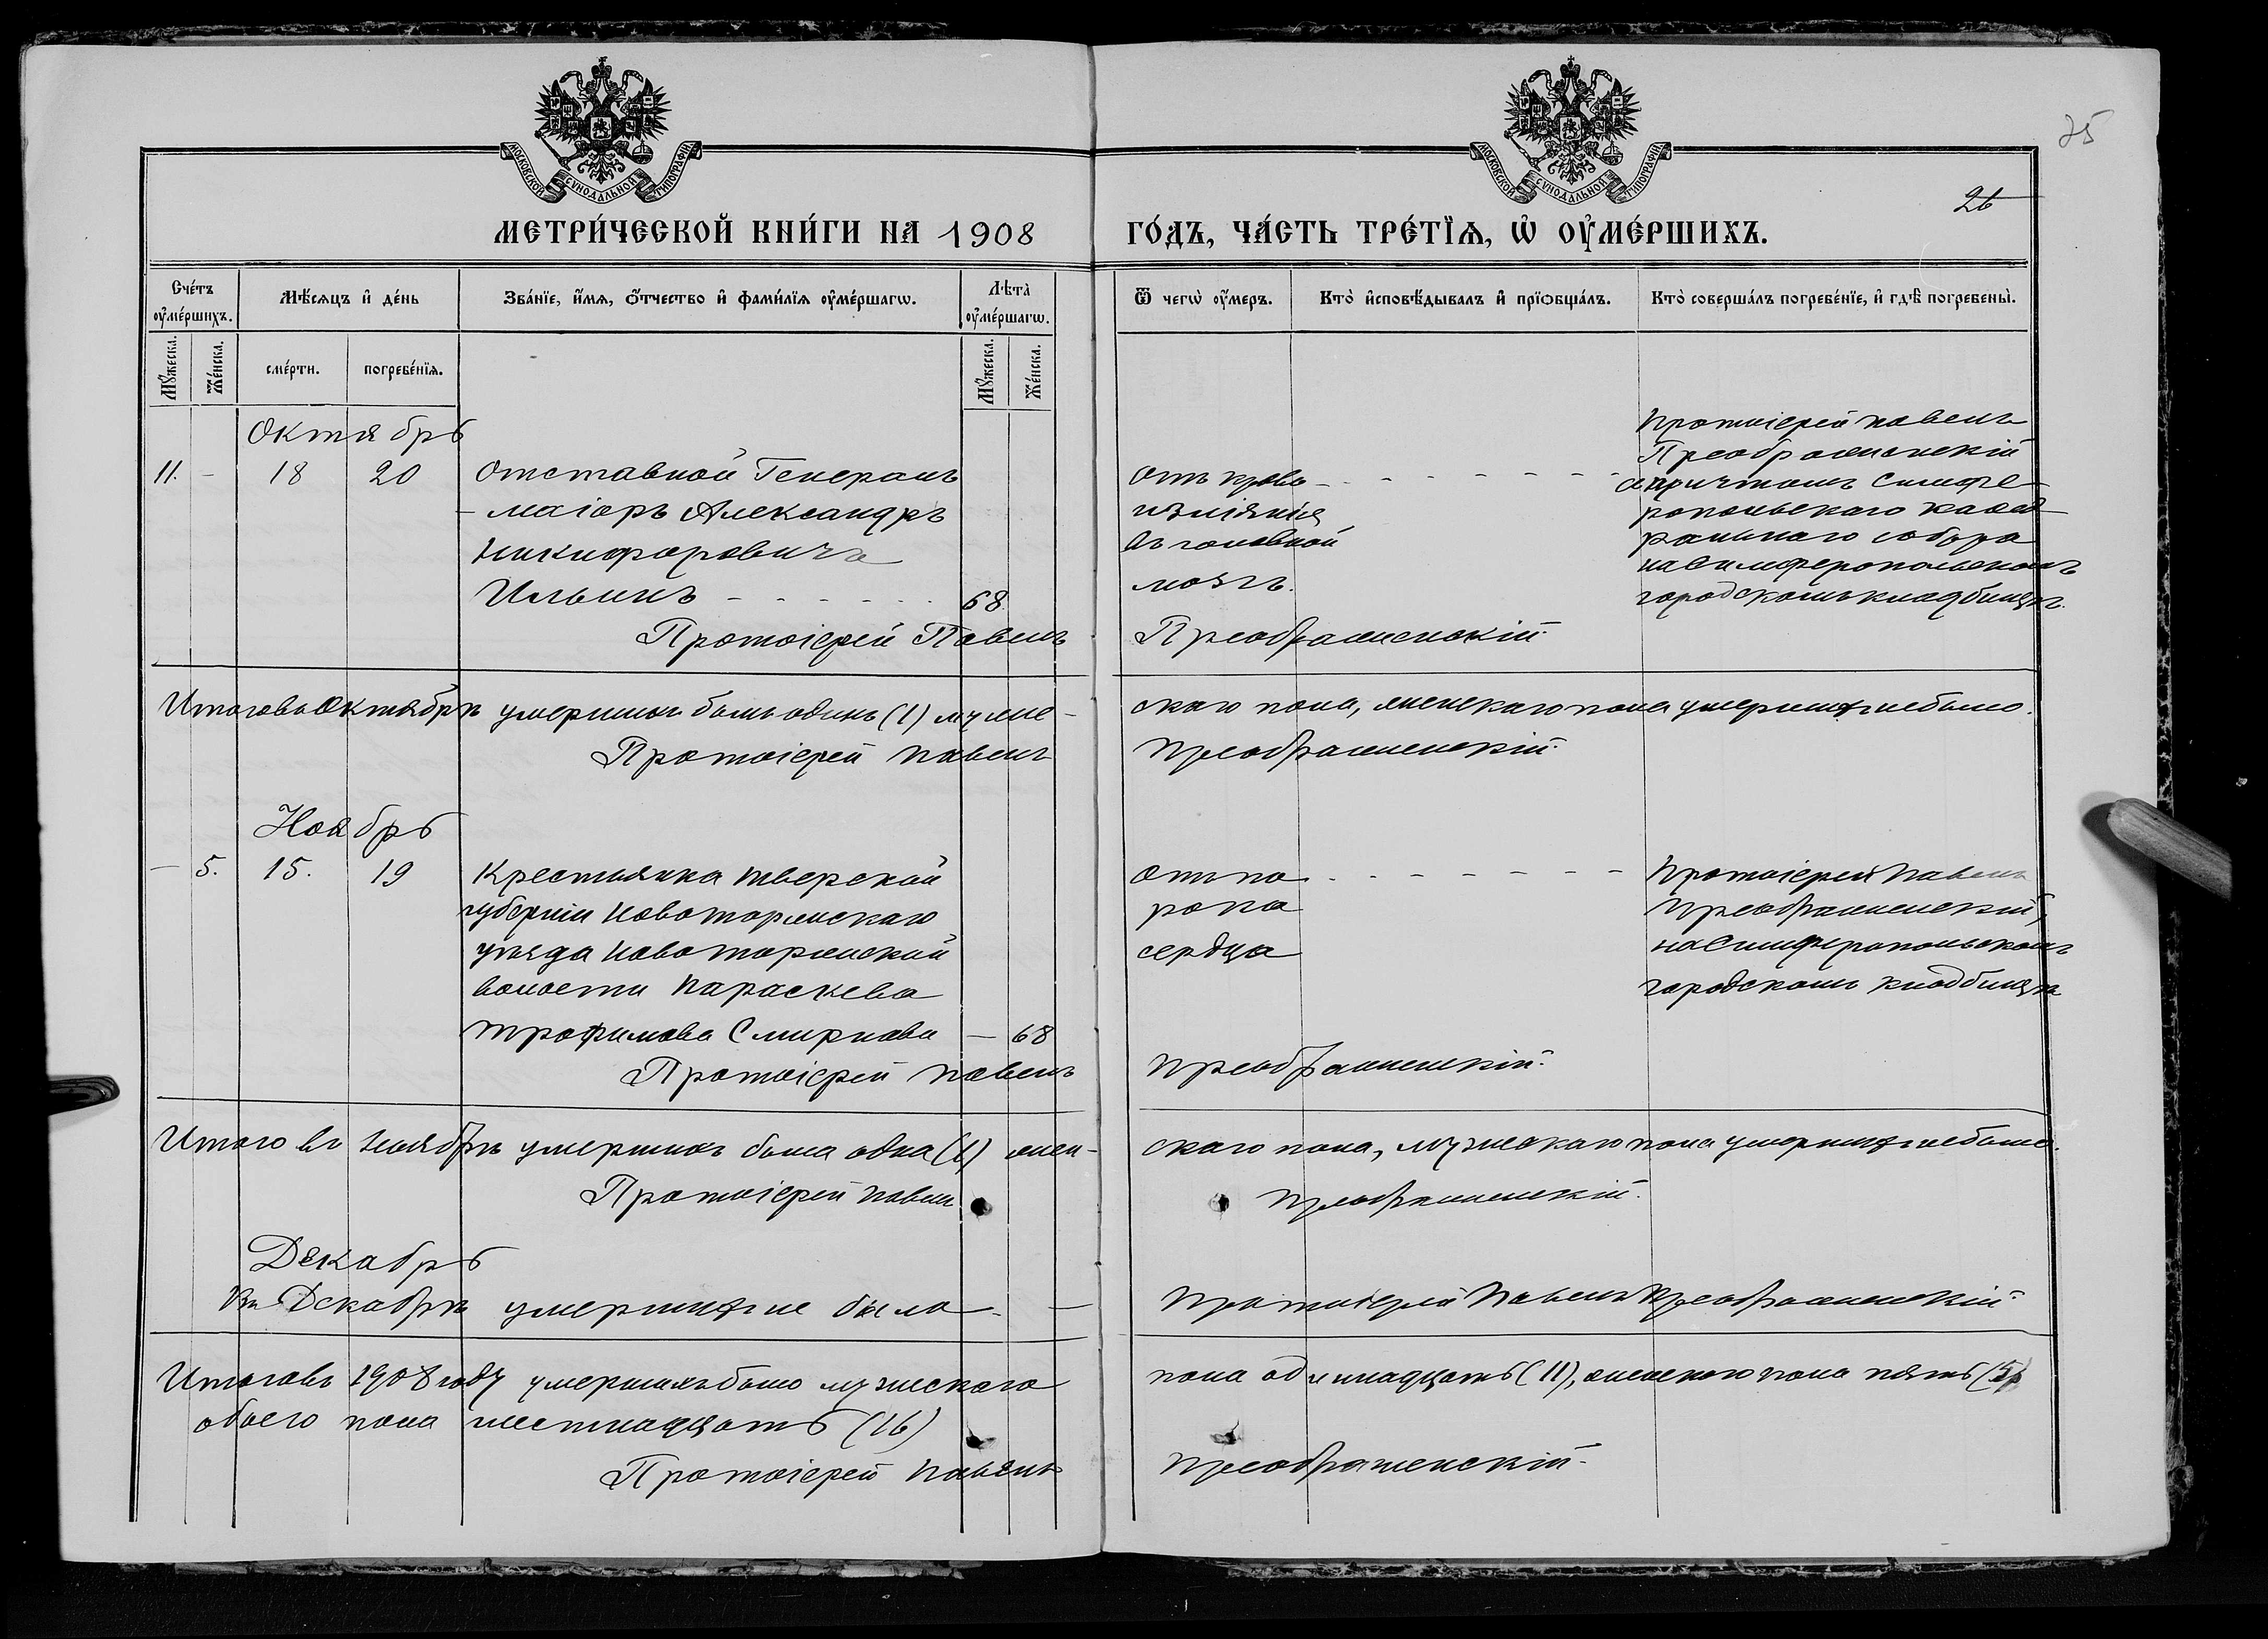 75
26
МОСКОВСКОЙ СѴНОДАЛЬНОЙ ТИПОГРАФІИ
МОСКОВСКОЙ СѴНОДАЛЬНОЙ ТИПОГРАФІИ
МЕТРИ́ЧЕСКОЙ КНИ́ГИ НА 1908 ГО́ДЪ, ЧА́СТЬ ТРЕ́ТЇѦ, Ѡ҆ ОУ҆МЕ́РШИХЪ.
Сче́тъ оу҆ме́ршихъ.
Мѣ́сяцъ и҆ де́нь
Зва́нїе, и҆́мѧ, ѻ҆́тчество и҆ фами́лїѧ оу҆ме́ршагѡ.
Лѣ́та оу҆ме́ршагѡ.
Ѿ чегѡ̀ оу҆́меръ.
Кто̀ и҆сповѣ́дывалъ и҆ прїѻбща́лъ.
Кто̀ соверша́лъ погребе́нїе, и҆ гдѣ̀ погребены̀.
Мꙋ́жеска.
Же́нска.
сме́рти.
погребе́нїѧ.
Мꙋ́жеска.
Же́нска.
Октябрь
11. - 18 20
Отставной Генералъ
-маіоръ Александръ
Никифоровичъ
Ильинъ - - - - - - 68.
Отъ крово-
изліянія
въ головной
мозгъ.
Протоіерей Павелъ
Преображенскій
съ причтомъ Симфе-
ропольскаго каѳед-
ральнаго собора
на Симферопольскомъ
городскомъ кладбищѣ.
Протоіерей Павелъ Преображенскій.
Итого въ Октябрѣ умершихъ былъ одинъ (1) муже-
скаго пола, женскаго пола умершихъ не было.
Протоіерей Павелъ Преображенскій.
Ноябрь
— 5. 15. 19
Крестьянка Тверской
губерніи Новоторжскаго
уѣзда Новоторжской
волости Параскева
Трофимова Смирнова — 68
Отъ по-
рока
сердца
Протоіерей Павелъ
Преображенскій,
на Симферопольскомъ
городскомъ кладбищѣ
Протоіерей Павелъ Преображенскій.
Итого въ Ноябрѣ умершихъ была одна (1) жен-
скаго пола, мужескаго пола умершихъ не было.
Протоіерей Павелъ Преображенскій.
Декабрь
Въ Декабрѣ умершихъ не было - —
Протоіерей Павелъ Преображенскій.
Итого въ 1908 году умершихъ было мужескаго
пола одиннадцать (11), женскаго пола пять (5)
обоего пола шестнадцать (16)
Протоіерей Павелъ Преображенскій.